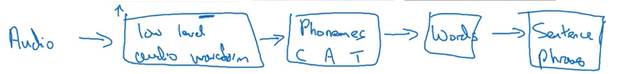 Audio
low level
audio waveform
Phonemes
C A T
Words
Sentence
Phrases